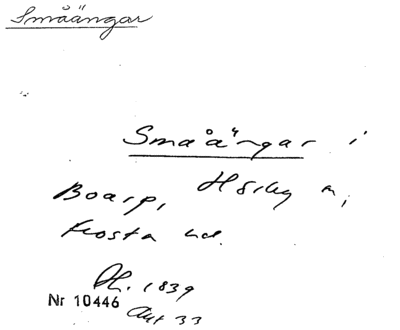 Småängar
Småängar i
Boarp, Hörby sn,
Frosta hd.
Dl. 1839
Nr 10446
Akt 33